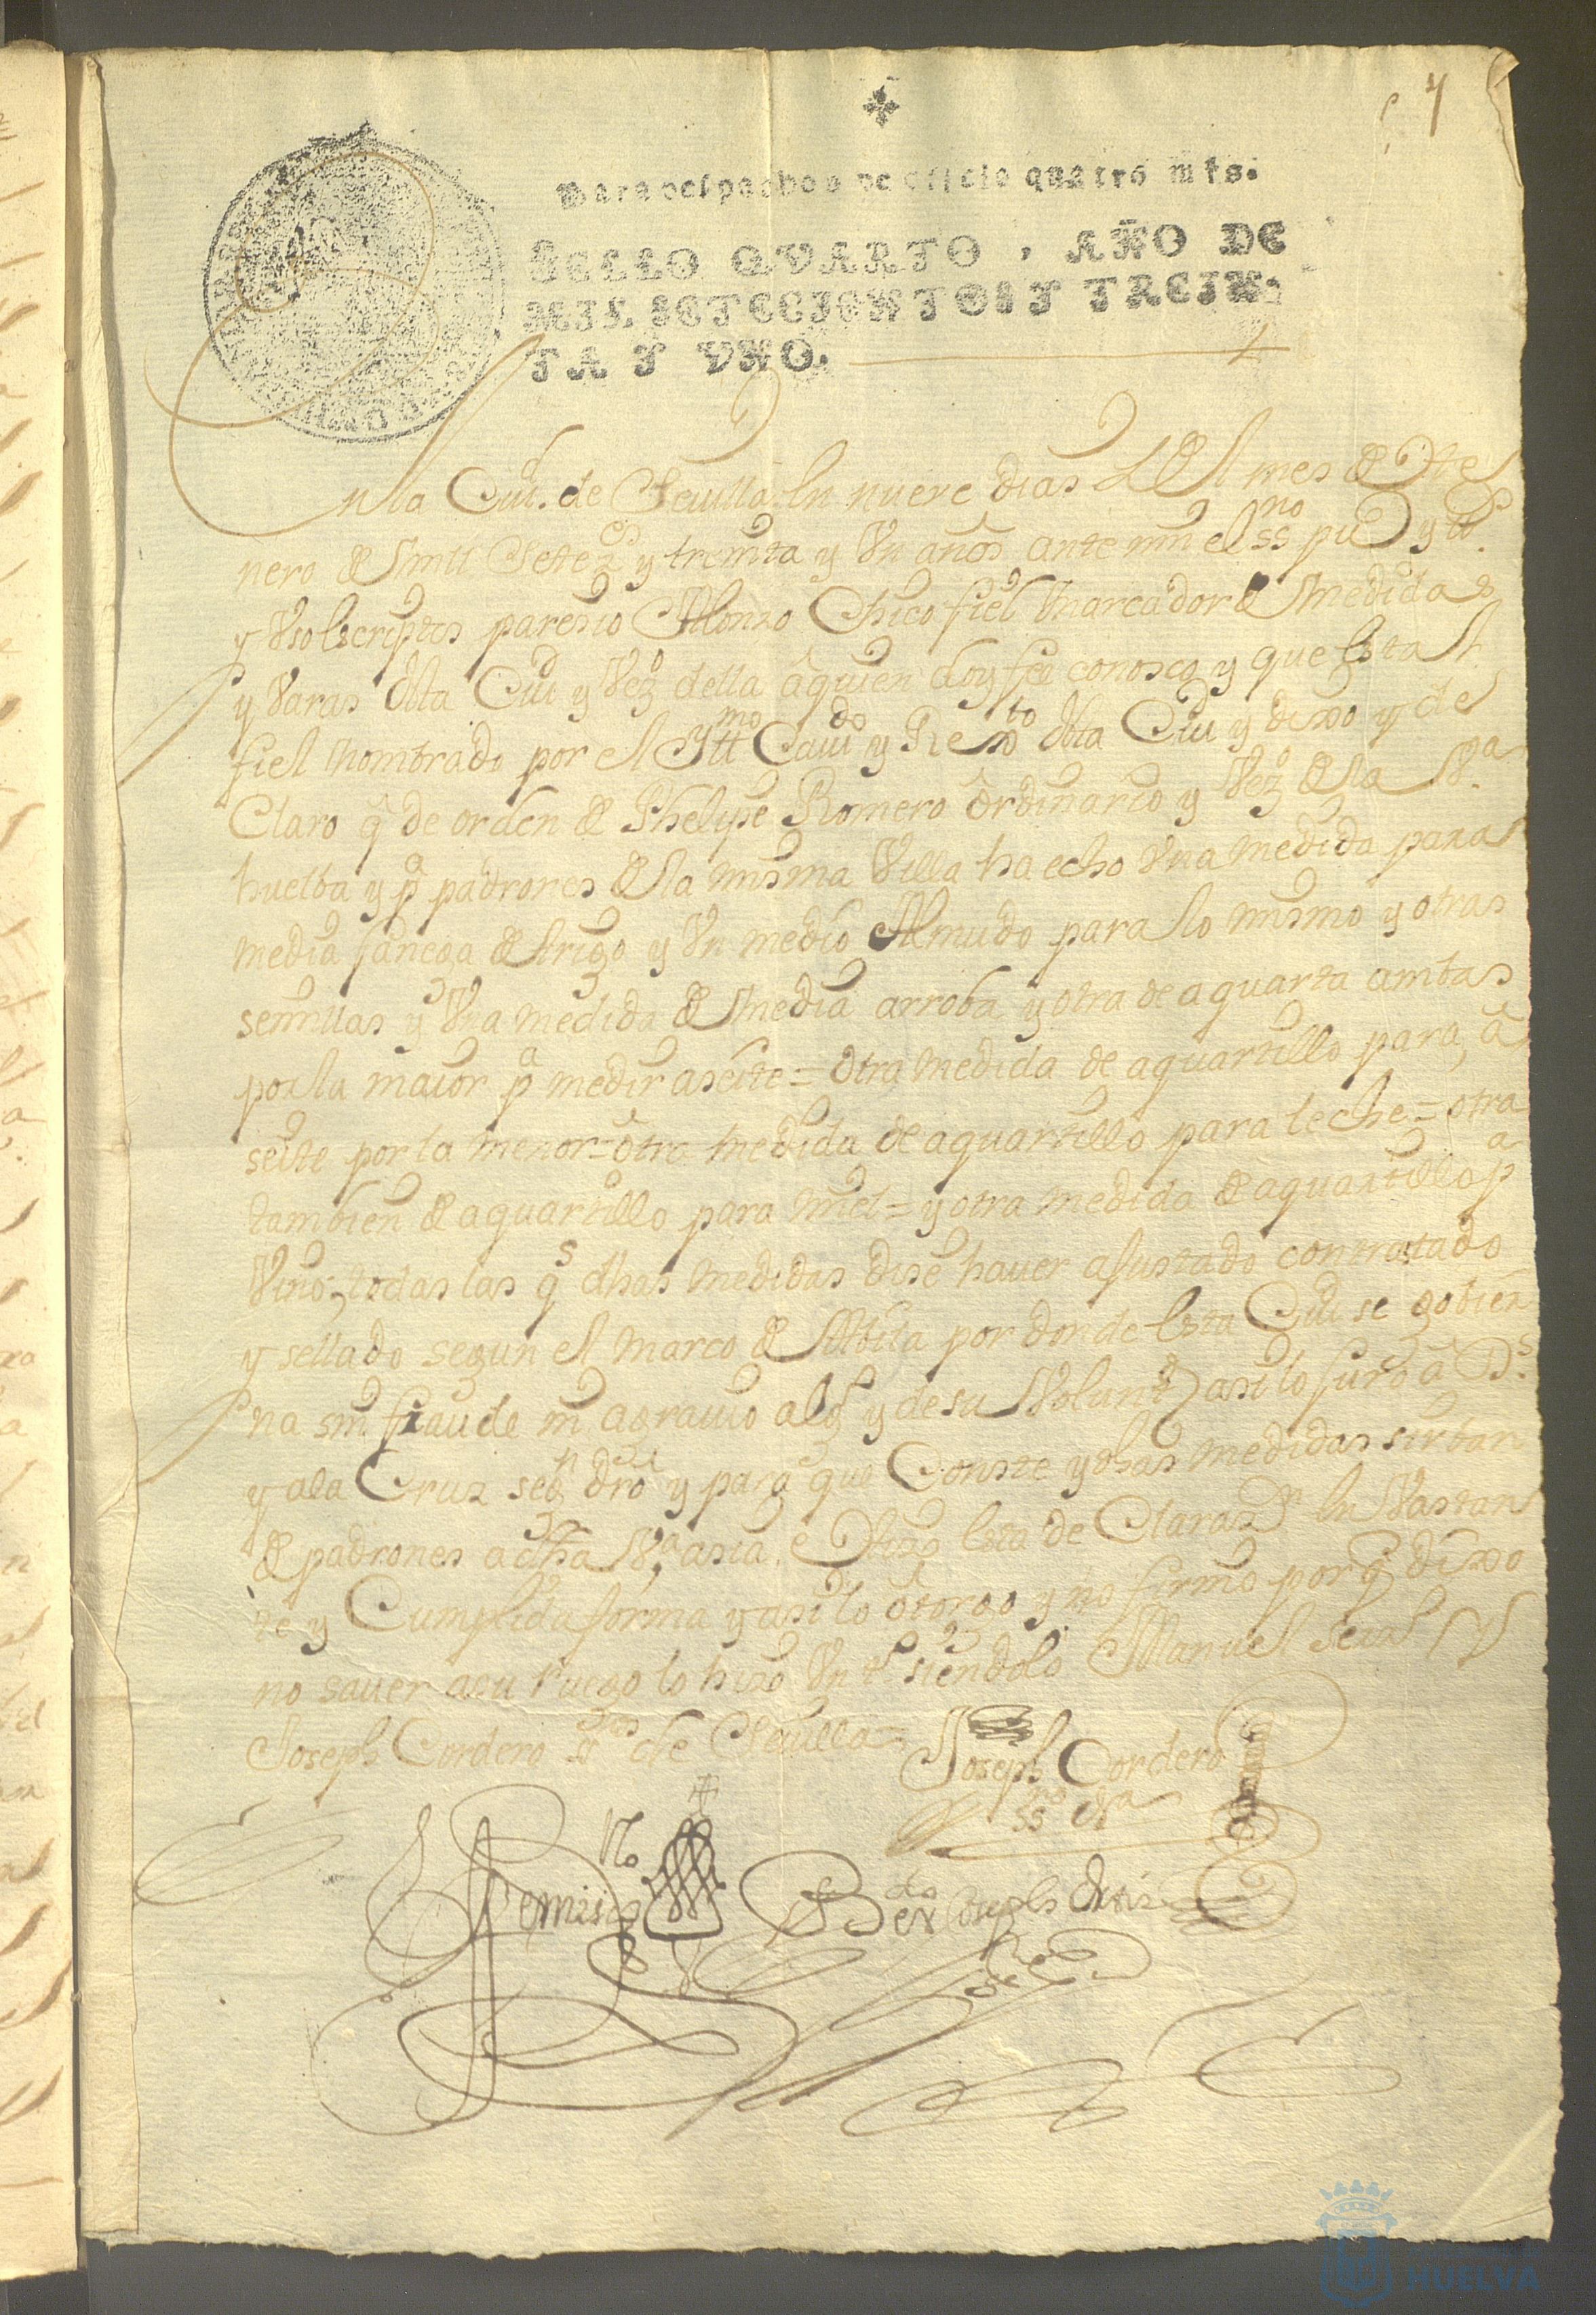 4
Para despachos de oficio quatro mrs.
SELLO QVARTO, AÑO DE
MIL SETECIENTOS Y TREIN-
TA Y VNO.
En la Ciud. de Seuilla en nueve dias del mes de He
nero de mill Setezos y treinta y Un años ante mi el ssno puco y tts
y Usoescriptos paresio Alonzo Chico fiel Marcador de medidas
y Varas desta Ciud y vezo della â quien doy fee conosco y que esta
fiel Nombrado por el Illmo Cauido y Rexto desta Ciud y dixo y de
Claro q de orden de Phelipe Romero ôrdinario y Vezo de la Va
huelba y pa padrones de la misma Villa ha echo Una medida para
media fanega de trigo y Un medio Almudo para lo mismo y otras
semillas y Una medida de media arroba y otra de a quarta ambas
por lu maior pa medir aseite = Otra medida de a quartillo para â
seite por la menor = ôtra medida de a quartillo para leche = otra
tambien de a quartillo para miel = y otra medida de a quartillo pa
Vino, todas las qs dhas medidas dise hauer ajustado contrastado
y sellado segun el marco de Abila por donde esta Ciud se gobier
na sin fraude ni agrauio algo y de su Voluntd asi lo juro â Ds.
y a la Cruz segn dro y para que Conste y dhas medidas sirban
de padrones a dha Va. hizo esta de Clarazn en Vastan
te y Cumplida forma y asi lo ôtorgo y no firmo por q dixo
no sauer a su ruego lo hizo Un to siendolo Manuel y
Joseph Cordero de Seuilla =
Joseph Cordero
ssno de Sa
Joseph Ortiz
HUELVA